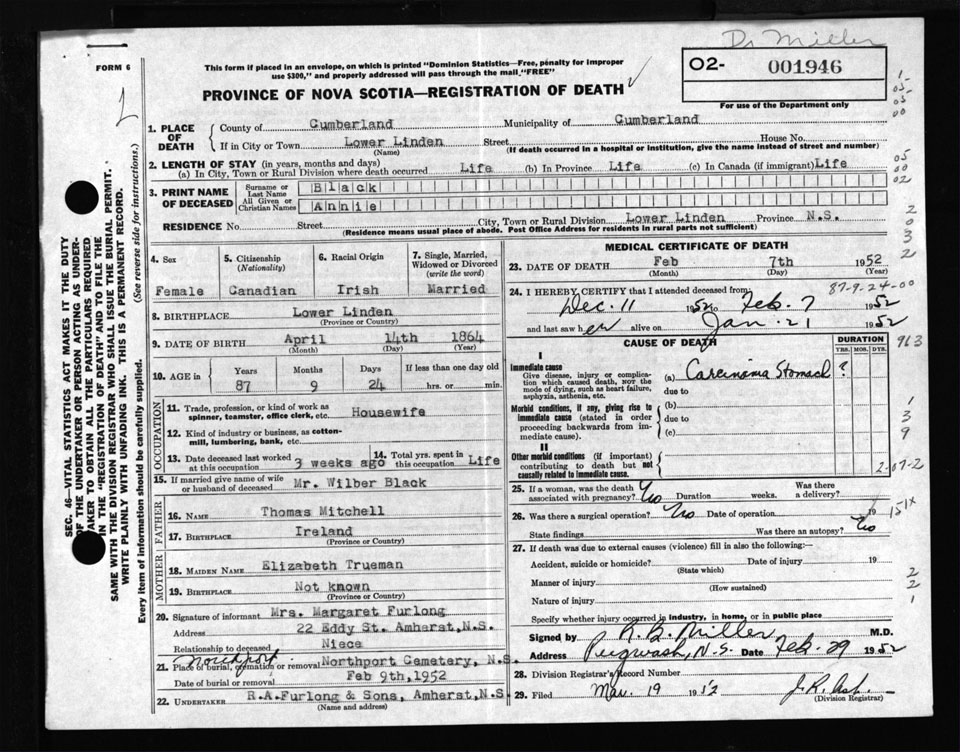 Dr Miller
FORM 6
This form if placed in an envelope, on which is printed "Dominion Statistics—Free, penalty for improper
use $300," and properly addressed will pass through the mail "FREE"
O2- 001946
PROVINCE OF NOVA SCOTIA—REGISTRATION OF DEATH
For use of the Department only
1. PLACE OF DEATH { County of Cumberland Municipality of Cumberland
If in City or Town Lower Linden Street House No.
(Name) (If death occurred in a hospital or institution, give the name instead of street and number)
2. LENGTH OF STAY (in years, months and days)
(a) In City, Town or Rural Division where death occurred Life (b) In Province Life (c) In Canada (if immigrant) Life
3. PRINT NAME OF DECEASED { Surname or Last Name Black
All Given or Christian Names Annie
RESIDENCE No. Street City, Town or Rural Division Lower Linden Province N.S.
(Residence means usual place of abode. Post Office Address for residents in rural parts not sufficient)
4. Sex Female
5. Citizenship (Nationality) Canadian
6. Racial Origin Irish
7. Single, Married, Widowed or Divorced (write the word) Married
8. BIRTHPLACE Lower Linden
(Province or Country)
9. DATE OF BIRTH April 14th 1864
(Month) (Day) (Year)
10. AGE in { Years Months Days If less than one day old
87 9 24 hrs. or min.
OCCUPATION
11. Trade, profession, or kind of work as spinner, teamster, office clerk, etc. Housewife
12. Kind of industry or business, as cotton-mill, lumbering, bank, etc.
13. Date deceased last worked at this occupation 3 weeks ago 14. Total yrs. spent in this occupation Life
15. If married give name of wife or husband of deceased Mr. Wilber Black
FATHER
16. NAME Thomas Mitchell
17. BIRTHPLACE Ireland
(Province or Country)
MOTHER
18. MAIDEN NAME Elizabeth Trueman
19. BIRTHPLACE Not known
(Province or Country)
20. Signature of informant Mrs. Margaret Furlong
Address 22 Eddy St. Amherst,N.S.
Relationship to deceased Niece
Northport
21. Place of burial, cremation or removal Northport Cemetery, N.S.
Date of burial or removal Feb 9th,1952
22. UNDERTAKER R.A.Furlong & Sons, Amherst,N.S.
(Name and address)
MEDICAL CERTIFICATE OF DEATH
23. DATE OF DEATH Feb 7th 1952
(Month) (Day) (Year)
87-9-24-00
24. I HEREBY CERTIFY that I attended deceased from:
Dec. 11 1952 to Feb. 7 1952
and last saw her alive on Jan. 21 1952
CAUSE OF DEATH DURATION
YRS. MOS. DYS.
I
Immediate cause
Give disease, injury or complication which caused death, NOT the mode of dying, such as heart failure, asphyxia, asthenia, etc.
(a) Carcinoma Stomach ?
due to
Morbid conditions, if any, giving rise to immediate cause (stated in order proceeding backwards from immediate cause).
(b)
due to
(c)
II
Other morbid conditions (if important) contributing to death but not causally related to immediate cause.
25. If a woman, was the death associated with pregnancy? No Duration weeks. Was there a delivery?
26. Was there a surgical operation? No Date of operation 19
State findings Was there an autopsy? No
27. If death was due to external causes (violence) fill in also the following:—
Accident, suicide or homicide? Date of injury 19
(State which)
Manner of injury
(How sustained)
Nature of injury
Specify whether injury occurred in industry, in home, or in public place
Signed by R. B. Miller M.D.
Address Pugwash, N.S. Date Feb. 29 1952
28. Division Registrar's Record Number
29. Filed Mar. 19 1952
(Division Registrar)
SEC. 46—VITAL STATISTICS ACT MAKES IT THE DUTY
OF THE UNDERTAKER OR PERSON ACTING AS UNDER-
TAKER TO OBTAIN ALL THE PARTICULARS REQUIRED
IN THE "REGISTRATION OF DEATH" AND TO FILE THE
SAME WITH THE DIVISION REGISTRAR WHO SHALL ISSUE THE BURIAL PERMIT.
WRITE PLAINLY WITH UNFADING INK. THIS IS A PERMANENT RECORD.
Every item of information should be carefully supplied. (See reverse side for instructions.)
1-
05-
05-
00
05
00
02
2
0
3
2
963
1
3
9
2-07-2
151X
2
2
1